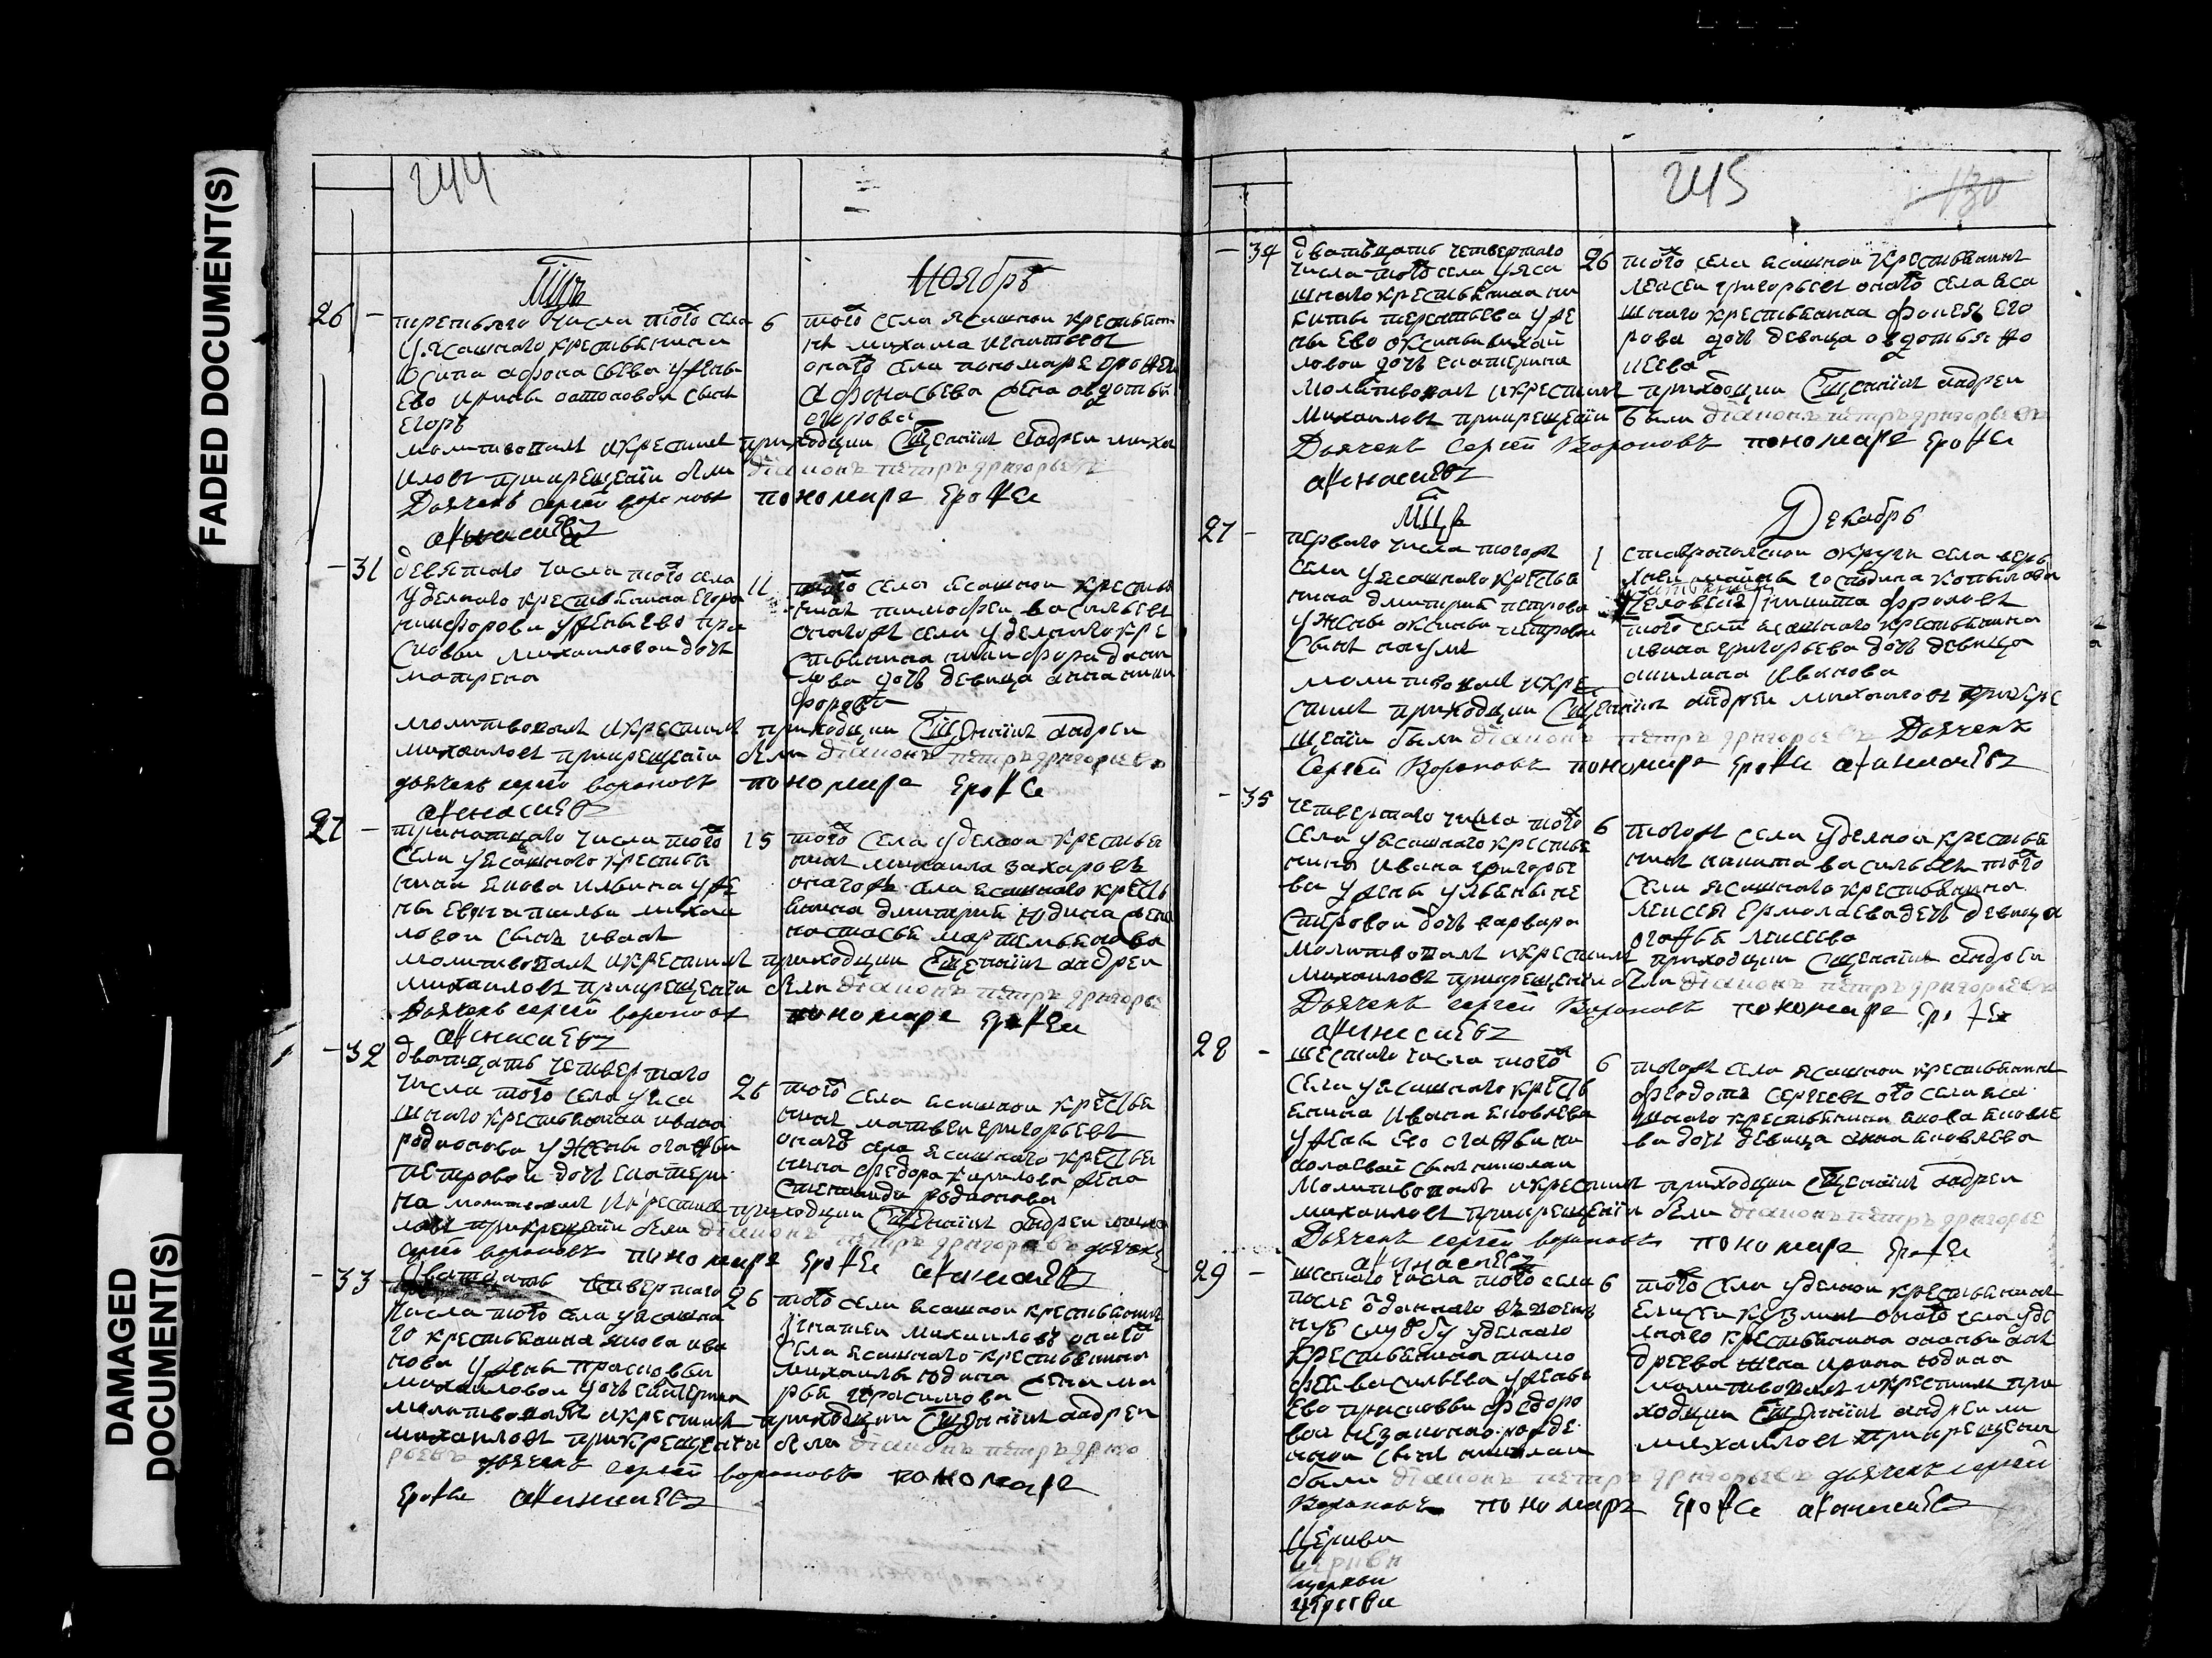 FADED DOCUMENT(S)
DAMAGED
DOCUMENT(S)
244
Мцъ Ноябрь
26 -
третьяго числа того села
у ясашнаго крестьянина
Осипа афонасьева у жены
Ево ирины антоновой сынъ
Егоръ
6
того села ясашной крестьяни
нъ михаила игнатьевъ
онаго села пономаря ерофея
Афонасьева жена авдотья
егорова
молитвовалъ икрестилъ приходцкии Сщеннікъ андреи михаи
иловъ прикрещеніи были діаконъ петръ григорьевъ
Дьячекъ сергей вороновъ пономарь Ерофеи
афонасиевъ
- 31
девятаго числа того села
удельнаго крестьянина Егора
никифорова у жены ево пра
сковьи михаиловой дочь
матрена
11
того села ясашнои крестья
нинъ тимофеи васильевъ
оногожъ села удельнаго кре
стьянина никифора дани
лова дочь девица анна ники
форова
молитвовалъ икрестилъ приходцкии Сщеннікъ андреи
михаиловъ прикрещеніи были діаконъ петръ григорьевъ
дьячекъ сергей вороновъ пономарь Ерофеи
афонасиевъ
27 -
тринатцаго числа того
села у ясашнаго крестья
нина якова ильина у же
ны Ево наталья михаи
ловой сынъ иванъ
15
того села уделнои крестьян
нинъ михаила захаровъ
оногожъ села ясашнаго кресть
янина дмитрия юдина жена
настасья мартемьянова
молитвовалъ икрестилъ приходцкии Сщеннікъ андреи
михаиловъ прикрещеніи были діаконъ петръ григорье
Дьячекъ сергей вороновъ пономарь Ерофеи
афонасиевъ
- 32
дватцать четвертаго
числа того села у яса
шнаго крестьянина ивана
родионова у жены огафьи
петровой дочь екатери
26
того села ясашнои крестья
нинъ матвеи григорьевъ
онаго села ясашнаго крестья
нина федора кирилова жена
степанида родионова
на молитвовалъ икрестилъ приходцкии Сщеннікъ андреи михаи
ловъ прикрещеніи были діаконъ петръ григорьевъ дьячекъ
сергей вороновъ пономарь Ерофеи афонасиевъ
- 33
дватцать четвертаго
числа того села у ясашна
го крестьянина якова ива
нова у жены прасковьи
михаиловой дочь екатерина
26
того села ясашнои крестьянинъ
игнатеи михаиловъ онаго
села ясашнаго крестьянина
михаилы юдина жена ма
рья герасимова
молитвовалъ икрестилъ приходцкии Сщеннікъ андреи
михаиловъ прикрещеніи были діаконъ петръ григо
рьевъ дьячекъ сергей вороновъ пономарь
Ерофеи афонасиевъ
245
130
- 34
дватьцать четвертаго
числа того села у яса
шнаго крестьянина ни
киты терентьева у же
ны Ево оксиньи михаи
ловой дочь екатерина
26
того села ясашнои крестьянинъ
лексеи григорьевъ онаго села яса
шнаго крестьянина фокея его
рова дочь девица овдотья фо
кеева
молитвовалъ икрестилъ приходцкии Сщеннікъ андреи
михаиловъ прикрещеніи были діаконъ петръ григорьевъ
Дьячекъ Сергей Вороновъ пономарь Ерофеи
афонасиевъ
Мцъ Декабрь
27 -
перваго числа тогожъ
села у ясашнаго крестья
нина дмитрия петрова
у жены оксиньи петровои
сынъ наумъ
1
ставропольскои округи села верь
хней майны господина копылова
человекъ никита фроловъ
того села ясашнаго крестьянина
ивана григорьева дочь девица
акилина Иванова
молитвовалъ икре
стилъ приходцкии Сщеннікъ андреи михаиловъ прикре
щеніи были діаконъ петръ григорьевъ Дьячекъ
Сергей Вороновъ пономарь Ерофеи афонасиевъ
- 35
четвертаго числа того
села у ясашнаго крестья
нина Ивана григорье
ва у жены ульяны пе
тировой дочь варвара
6
тогожъ села уделнои крестья
нинъ никита васильевъ того
села ясашнаго крестьянина
лексея ермолаева дочь девица
огафья лексеева
молитвовалъ икрестилъ приходцкии Сщеннікъ андреи
михаиловъ прикрещеніи были діаконъ петръ григорьевъ
Дьячекъ сергей Вороновъ пономарь Ерофеи
афонасиевъ
28 -
шестаго числа того
села у ясашнаго кресть
янина Ивана яковлева
у жены Ево огафьи ни
колаевой сынъ николаи
6
тогожъ села ясашнои крестьянинъ
федотъ сергеевъ ого села яса
шнаго крестьянина якова яковле
ва дочь девица анна яковлева
молитвовалъ икрестилъ приходцкии Сщеннікъ андреи
михаиловъ прикрещеніи были діаконъ петръ григорье
Дьячекъ сергей вороновъ пономарь Ерофеи
афонасиевъ
29 -
шестаго числа того села
после отданнаго въ воен
ную службу уделнаго
крестьянина тимо
фея васильева у жены
Ево прасковьи федоро
вой незаконно рожде
ннои сынъ николаи
6
того села уделнои крестьянинъ
елисеи кузминъ онаго села уде
лнаго крестьянина онаньи ан
дреева жена ирина юдина
молитвовалъ икрестилъ при
ходцкии Сщеннікъ андреи ми
михаиловъ прикрещении
были діаконъ петръ григорьевъ дьячекъ сергеи
Вороновъ пономарь Ерофеи афонасиевъ
Церкви
церкви
церкви
церкви